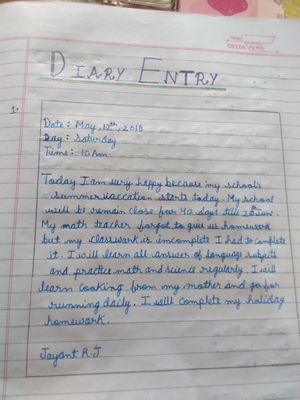 DIARY ENTRY
1.
Date : May, 12th, 2018
Day : Saturday
Time : 10 Am
Today I am very happy because my school's
summer vaccation starts today. My school
will be remain close for 40 days till 20 June.
My math teacher forgot to give us homework
but my classwork is incomplete I had to complete
it. I will learn all answer of language subjects
and practice math and science regularly. I will
learn cooking from my mother and go for
running daily. I will complete my holiday
homework.
Jayant R.J